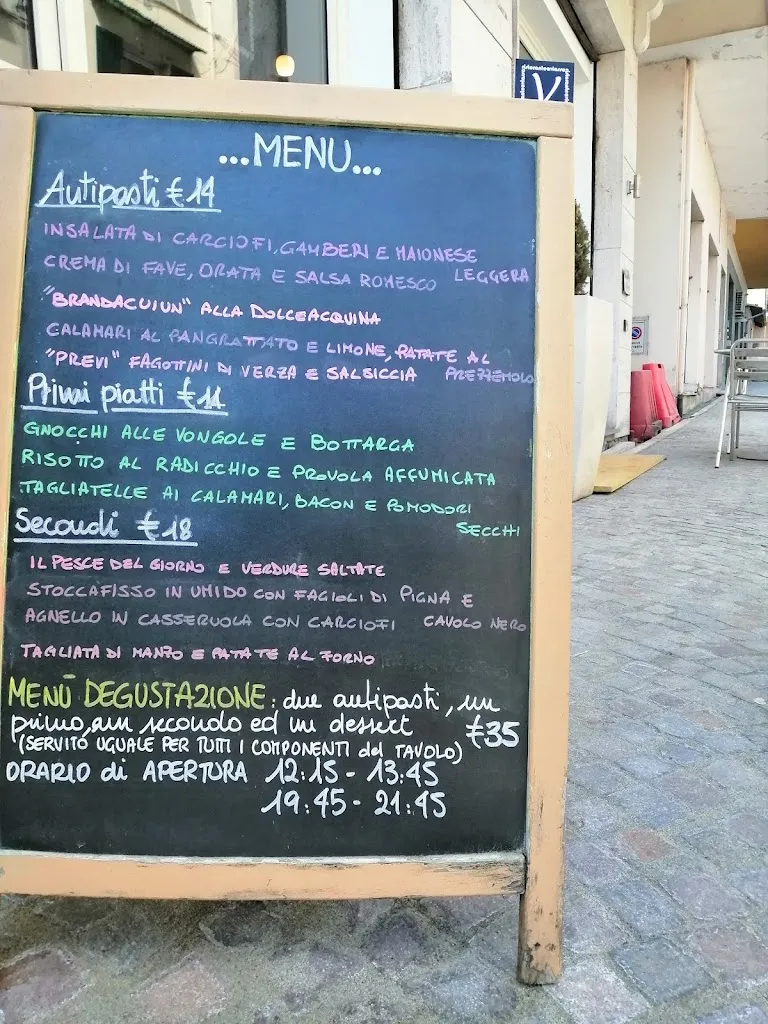 ...MENU...
Antipasti €14
INSALATA DI CARCIOFI, GAMBERI E MAIONESE
LEGGERA
CREMA DI FAVE, ORATA E SALSA ROMESCO
"BRANDACUIUN" ALLA DOLCEACQUINA
CALAMARI AL PANGRATTATO E LIMONE, PATATE AL
PREZZEMOLO
"PREVI" FAGOTTINI DI VERZA E SALSICCIA
Primi piatti €11
GNOCCHI ALLE VONGOLE E BOTTARGA
RISOTTO AL RADICCHIO E PROVOLA AFFUMICATA
TAGLIATELLE AI CALAMARI, BACON E POMODORI
SECCHI
Secondi €18
IL PESCE DEL GIORNO E VERDURE SALTATE
STOCCAFISSO IN UMIDO CON FAGIOLI DI PIGNA E
CAVOLO NERO
AGNELLO IN CASSERUOLA CON CARCIOFI
TAGLIATA DI MANZO E PATATE AL FORNO
MENÙ DEGUSTAZIONE: due antipasti, un
primo, un secondo ed un dessert €35
(SERVITO UGUALE PER TUTTI I COMPONENTI del TAVOLO)
ORARIO di APERTURA 12:15 - 13:45
19:45 - 21:45